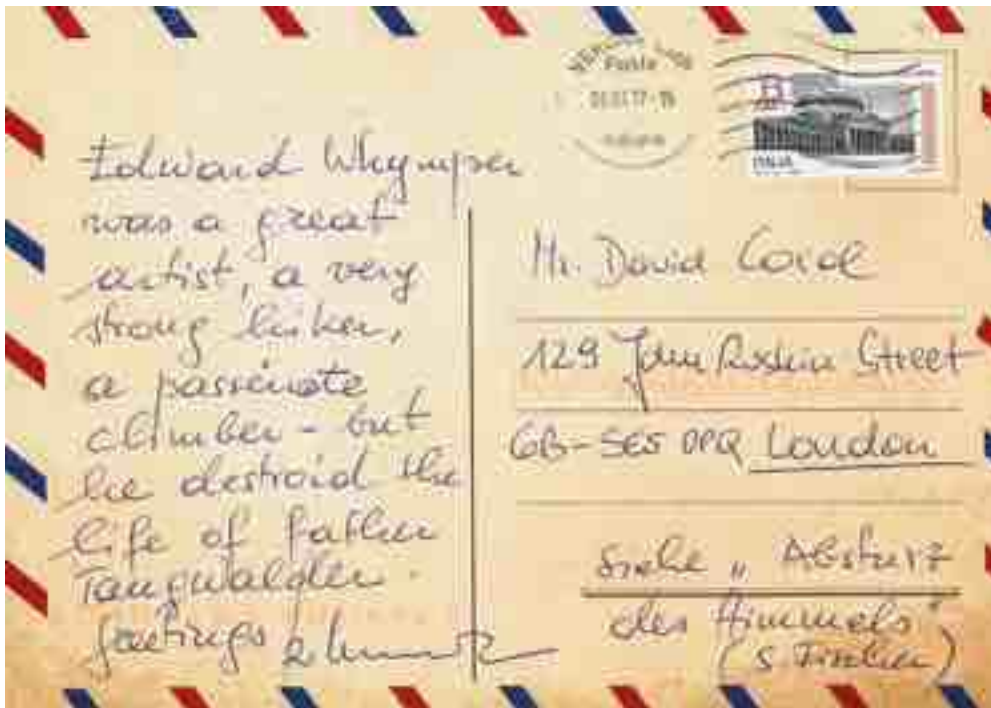 Poste
ITALIA
B
Edward Whymper
was a great
artist, a very
strong hiker,
a passinate
climber - but
he destroid the
life of father
Taugwalder.
greetings
Mr. David
129 John Ruskin Street
GB-SE5 0PQ London
siehe „Absturz
des Himmels“
(S. Fischer)